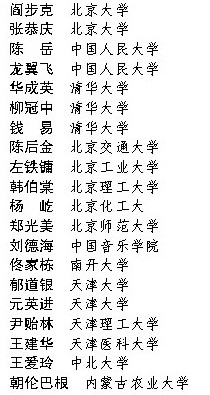 阎步克 北京大学
张恭庆 北京大学
陈 岳 中国人民大学
龙翼飞 中国人民大学
华成英 清华大学
柳冠中 清华大学
钱 易 清华大学
陈后金 北京交通大学
左铁镛 北京工业大学
韩伯棠 北京理工大学
杨 屹 北京化工大
郑光美 北京师范大学
刘德海 中国音乐学院
佟家栋 南开大学
郁道银 天津大学
元英进 天津大学
尹贻林 天津理工大学
王建华 天津医科大学
王爱玲 中北大学
朝伦巴根 内蒙古农业大学